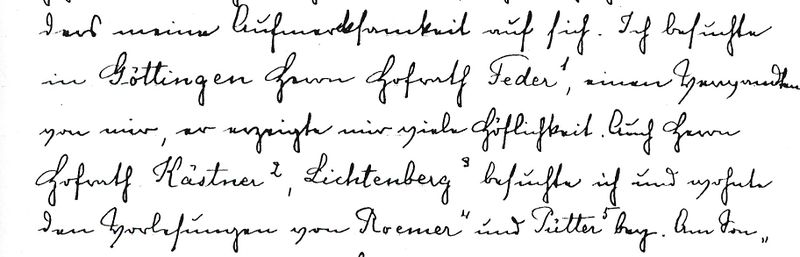 ders meine Aufmerksamkeit auf sich. Ich besuchte
in Göttingen Herrn Hofrath Feder¹, einen Verwandten
von mir, er erzeigte mir viele Höflichkeit. Auch Herrn
Hofrath Kästner², Lichtenberg³ besuchte ich und wohnte
den Vorlesungen von Roemer⁴ und Pütter⁵ bey. Am Son„